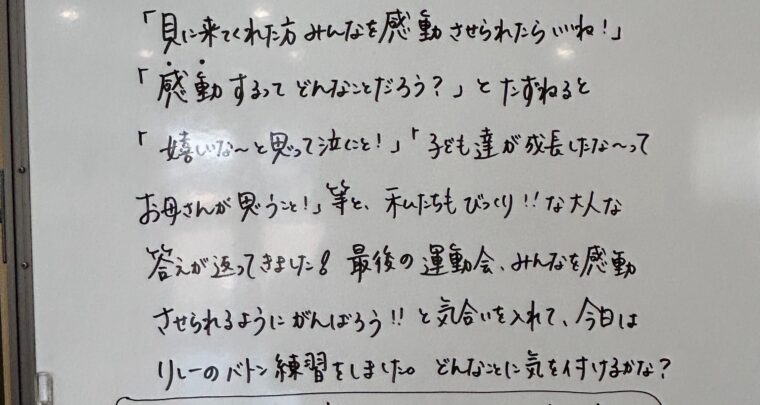 「見に来てくれた方みんなを感動させられたらいいね!」
「感動するってどんなことだろう?」とたずねると
「嬉しいな〜と思って泣くこと!」「子ども達が成長したな〜って
お母さんが思うこと!」等と、私たちもびっくり!!な大人な
答えが返ってきました!最後の運動会、みんなを感動
させられるようにがんばろう!!と気合いを入れて、今日は
リレーのバトン練習をしました。どんなことに気を付けるかな?